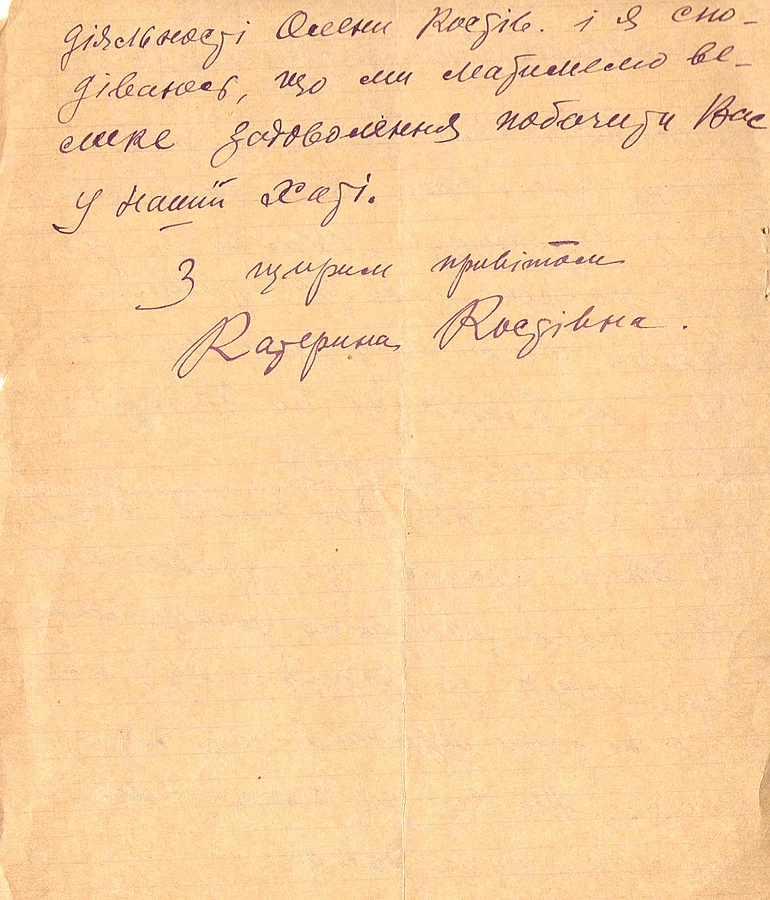 діяльності Олени Костів. і я спо-
діваюсь, що ми матимемо ве-
лике задоволення побачити Вас
у нашій хаті.
З щирим привітом
Катерина Костівна.